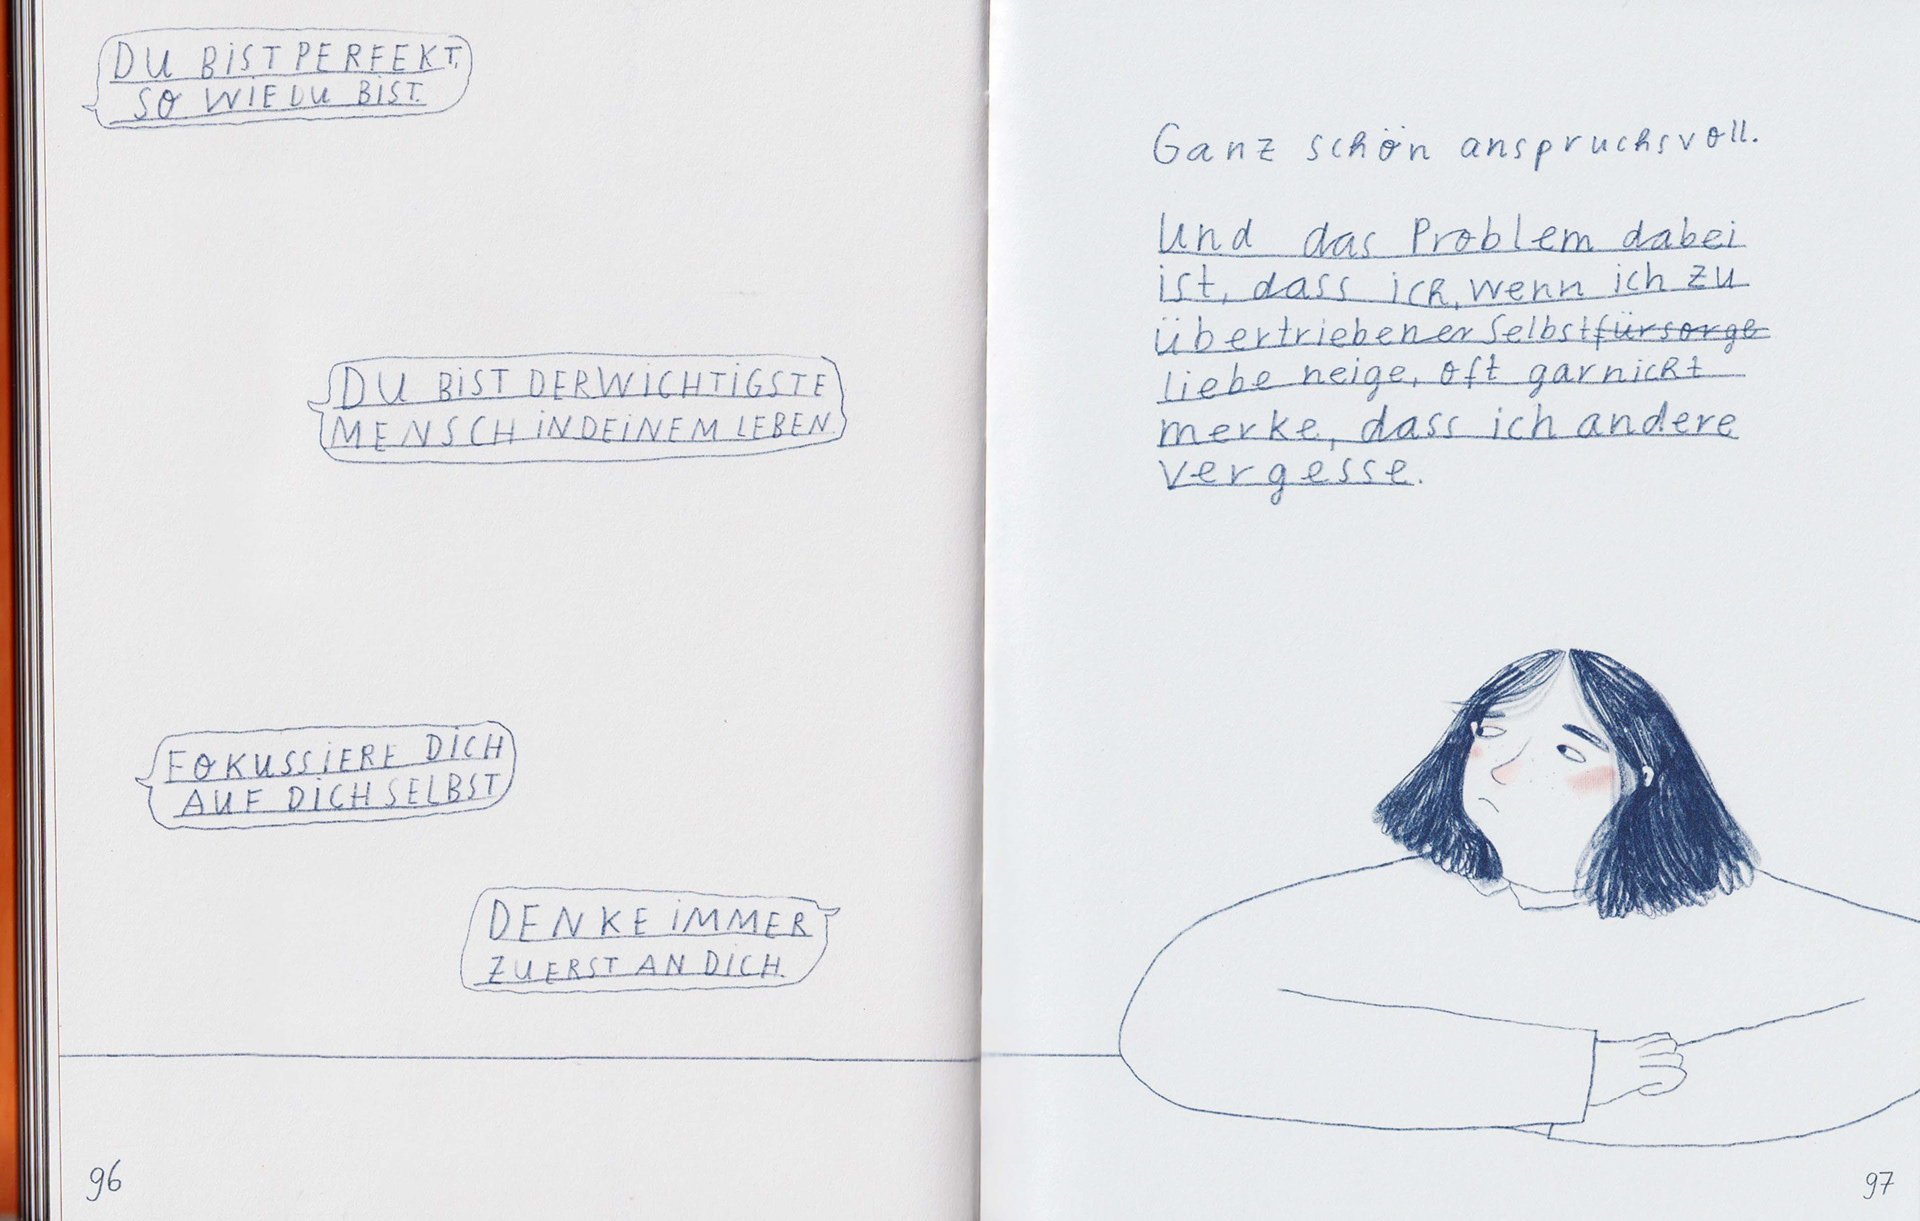 DU BIST PERFEKT,
SO WIE DU BIST.
DU BIST DER WICHTIGSTE
MENSCH IN DEINEM LEBEN.
FOKUSSIERE DICH
AUF DICH SELBST
DENKE IMMER
ZUERST AN DICH.
96
Ganz schön anspruchsvoll.
Und das Problem dabei
ist, dass ich, wenn ich zu
übertriebener Selbstfürsorge
liebe neige, oft garnicht
merke, dass ich andere
vergesse.
97